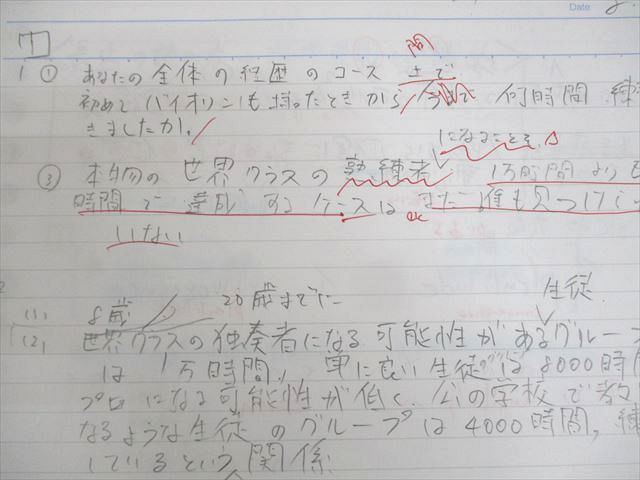 Date
1 ① あなたの全体の経歴のコース 間 まで
初めてバイオリンを持ったときから 今まで 何時間 練
きましたか。
になることを。
③ 本物の世界クラスの熟練者 1万時間より
時間で達成するケースは まだ誰も見つけ
いない
(1) 8歳 20歳までに 生徒
(2) 世界クラスの独奏者になる可能性があるグルー
は 1万時間, 単に良い生徒は8000時
プロになる可能性が低く、公の学校で教
なるような生徒のグループは4000時間, 練
しているという関係